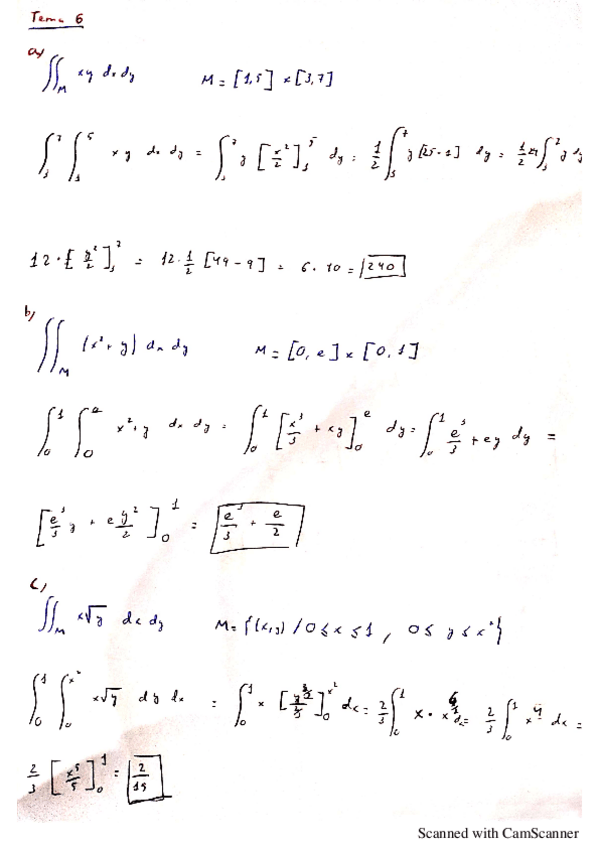 Tema 6
a)
∬_M xy dx dy    M = [1,5] × [3,7]
∫_3^7 ∫_1^5 xy dx dy = ∫_3^7 y [x²/2]_1^5 dy = 1/2 ∫_3^7 y [25-1] dy = 1/2 24 ∫_3^7 y dy
12 · [y²/2]_3^7 = 12 · 1/2 [49-9] = 6 · 40 = 240
b)
∬_M (x²+y) dx dy    M = [0,e] × [0,1]
∫_0^1 ∫_0^e x²+y dx dy = ∫_0^1 [x³/3 + xy]_0^e dy = ∫_0^1 e³/3 + ey dy =
[e³/3 y + e y²/2]_0^1 = e³/3 + e/2
c)
∬_M x√y dx dy    M = {(x,y) / 0 ≤ x ≤ 1, 0 ≤ y ≤ x²}
∫_0^1 ∫_0^x² x√y dy dx = ∫_0^1 x [y^(3/2) / (3/2)]_0^x² dx = 2/3 ∫_0^1 x · x^(6/2) dx = 2/3 ∫_0^1 x⁴ dx =
2/3 [x⁵/5]_0^1 = 2/15
Scanned with CamScanner